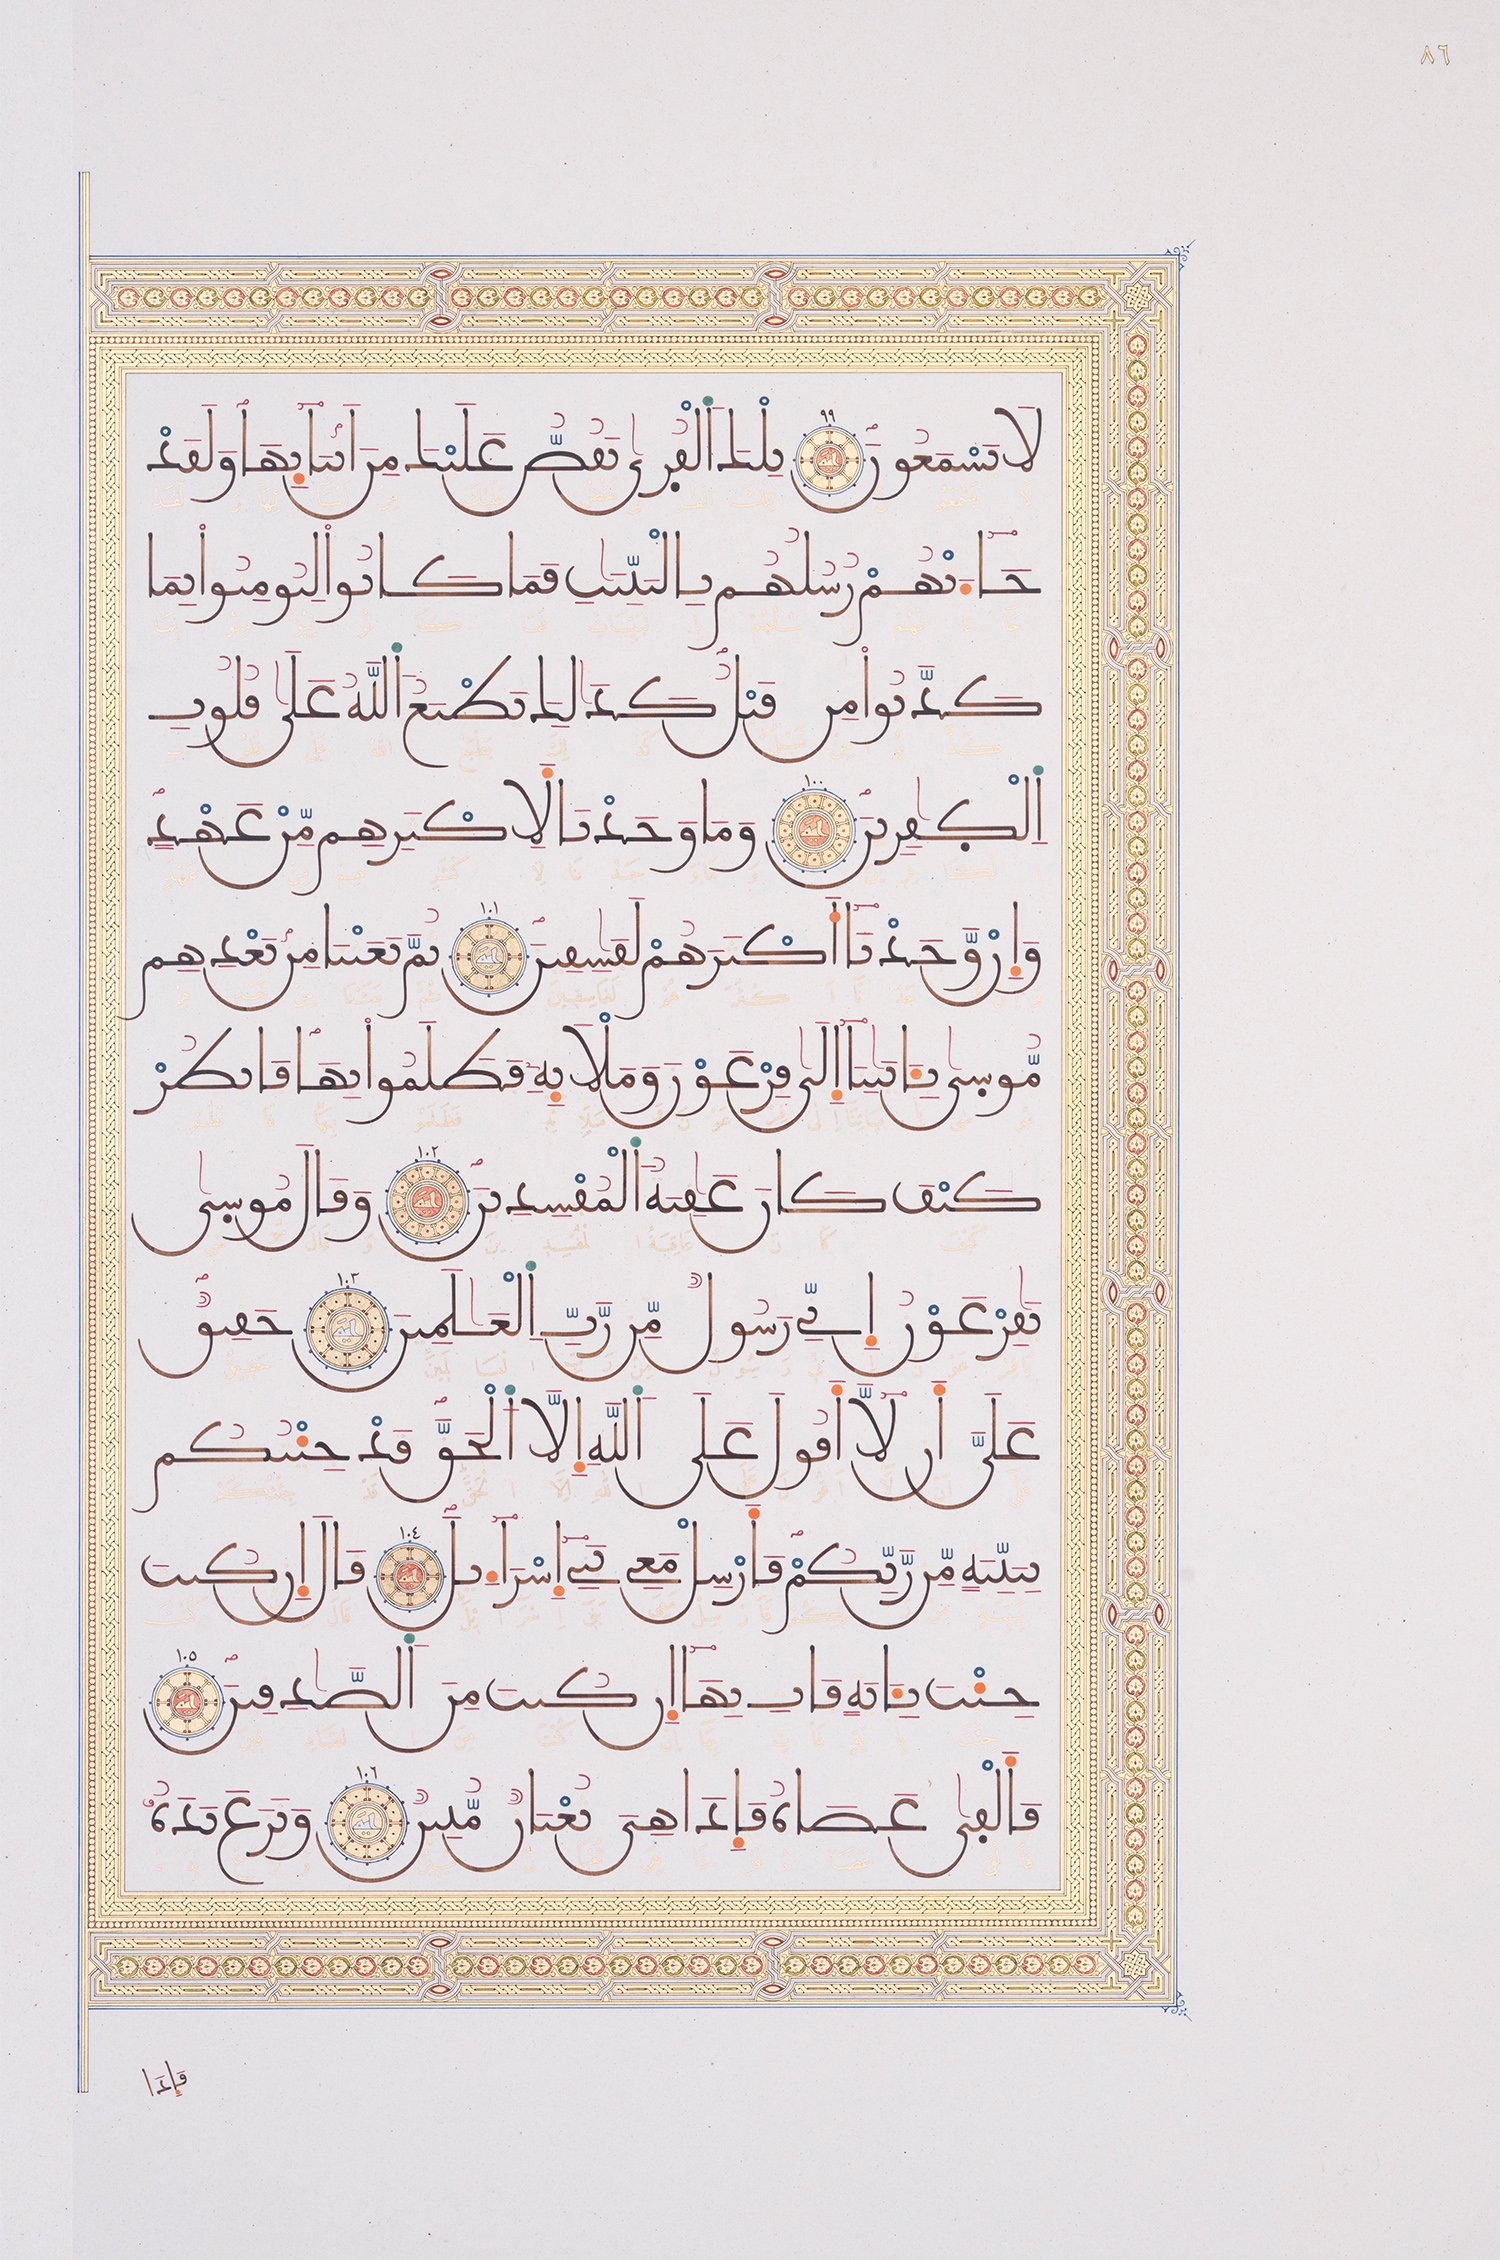 ٨٦
لَا تَسْمَعُونَ ٩٩ تِلْكَ ٱلْقُرَىٰ نَقُصُّ عَلَيْكَ مِنَ اَنۢبَآئِهَا وَلَقَدْ
جَآءَتْهُمْ رُسُلُهُم بِالْبَيِّنَٰتِ فَمَا كَانُوا لِيُومِنُوا بِمَا
كَذَّبُوا مِن قَبْلُ كَذَٰلِكَ يَطْبَعُ ٱللَّهُ عَلَىٰ قُلُوبِ
ٱلْكَٰفِرِينَ ١٠٠ وَمَا وَجَدْنَا لِأَكْثَرِهِم مِّنْ عَهْدٍ
وَإِنْ وَّجَدْنَآ أَكْثَرَهُمْ لَفَٰسِقِينَ ١٠١ ثُمَّ بَعَثْنَا مِنۢ بَعْدِهِم
مُّوسَىٰ بِـَٔايَٰتِنَآ إِلَىٰ فِرْعَوْنَ وَمَلَإِيهِ فَظَلَمُوا بِهَا فَانظُرْ
كَيْفَ كَانَ عَٰقِبَةُ ٱلْمُفْسِدِينَ ١٠٢ وَقَالَ مُوسَىٰ
يَٰفِرْعَوْنُ إِنِّي رَسُولٌ مِّن رَّبِّ ٱلْعَٰلَمِينَ ١٠٣ حَقِيقٌ
عَلَيَّ أَن لَّآ أَقُولَ عَلَى ٱللَّهِ إِلَّا ٱلْحَقَّ قَدْ جِئْتُكُم
بِبَيِّنَةٍ مِّن رَّبِّكُمْ فَأَرْسِلْ مَعِي بَنِيٓ إِسْرَآءِيلَ ١٠٤ قَالَ إِن كُنتَ
جِئْتَ بِـَٔايَةٍ فَاتِ بِهَآ إِن كُنتَ مِنَ ٱلصَّٰدِقِينَ ١٠٥
فَأَلْقَىٰ عَصَاهُ فَإِذَا هِيَ ثُعْبَانٌ مُّبِينٌ ١٠٦ وَنَزَعَ يَدَهُۥ
فَإِذَا